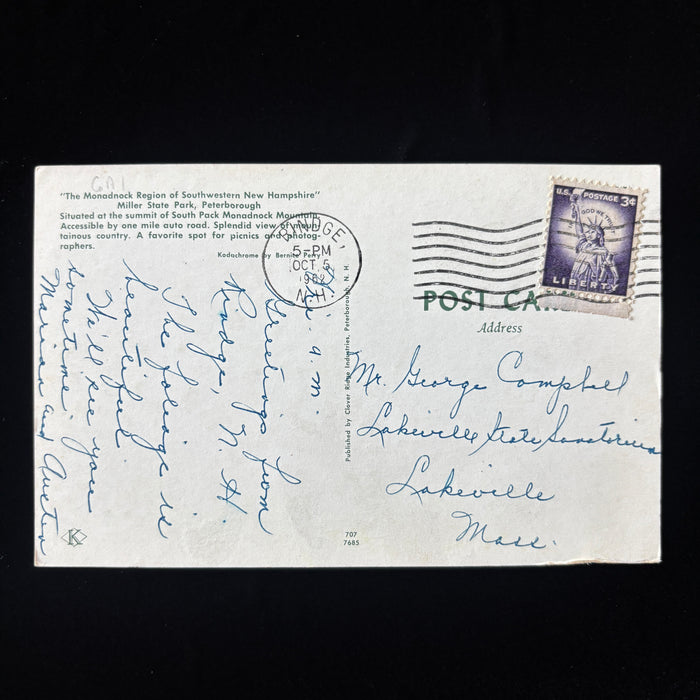 "The Monadnock Region of Southwestern New Hampshire"
Miller State Park, Peterborough
Situated at the summit of South Pack Monadnock Mountain.
Accessible by one mile auto road. Splendid view of moun-
tainous country. A favorite spot for picnics and photog-
raphers.
Kodachrome by Bernice Perry
RINDGE,
5-PM
OCT 5
1962
N.H.
U.S. POSTAGE 3¢
IN GOD WE TRUST
LIBERTY
POST CA
Address
a.m.
Greetings from
Rindge, N. H.
The foliage is
beautiful
We'll see you
sometime.
Marian and Austin
Published by Clover Ridge Industries, Peterborough, N. H.
Mr. George Campbell
Lakeville State Sanatorium
Lakeville
Mass.
K
707
7685